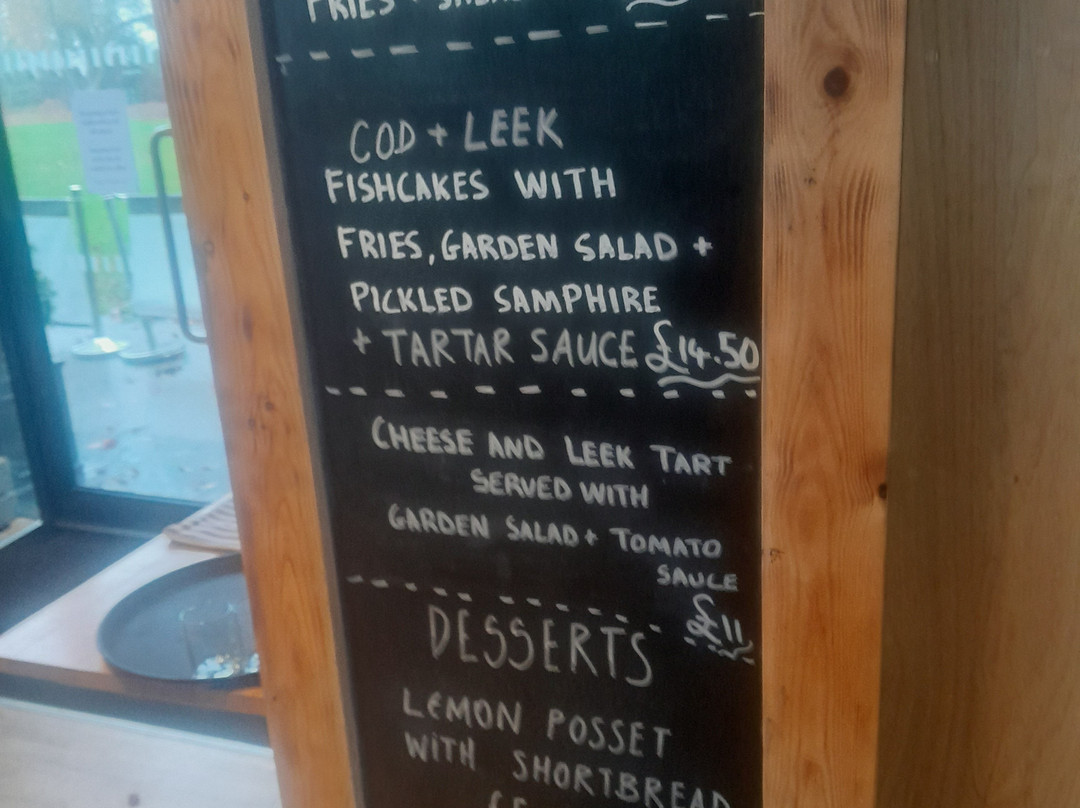 FRIES
COD + LEEK
FISHCAKES WITH
FRIES, GARDEN SALAD +
PICKLED SAMPHIRE
+ TARTAR SAUCE £14.50
CHEESE AND LEEK TART
SERVED WITH
GARDEN SALAD + TOMATO
SAUCE
£11
DESSERTS
LEMON POSSET
WITH SHORTBREAD